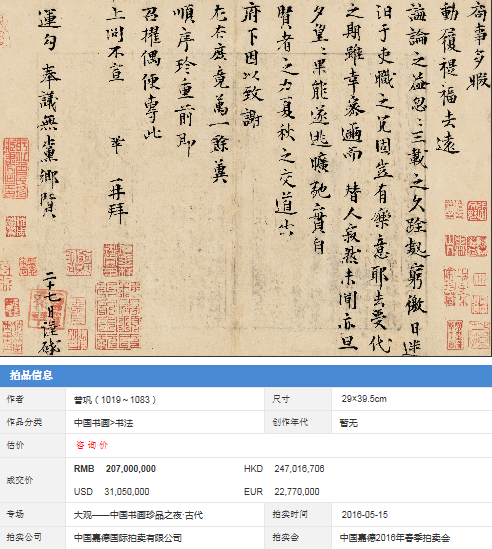 局事多暇
動履禔福去遠
誨論之益忽〻三載之久跧處窮徼日迷
汩于吏職之冗固豈有樂意耶去受代
之期雖幸密邇而替人寂然未聞亦旦
夕望〻果能遂逃曠弛實自
賢者之力夏秋之交道出
府下因以致謝
左右庶竟萬一餘冀
順序珍重前即
召擢偶便專此
上問不宣 鞏 再拜
運勾 奉議無黨鄉賢 二十七日謹啟
拍品信息
作者 曾巩（1019～1083） 尺寸 29×39.5cm
作品分类 中国书画>书法 创作年代 暂无
估价 咨询价
成交价 RMB 207,000,000 HKD 247,016,706
USD 31,050,000 EUR 22,770,000
专场 大观——中国书画珍品之夜·古代 拍卖时间 2016-05-15
拍卖公司 中国嘉德国际拍卖有限公司 拍卖会 中国嘉德2016年春季拍卖会